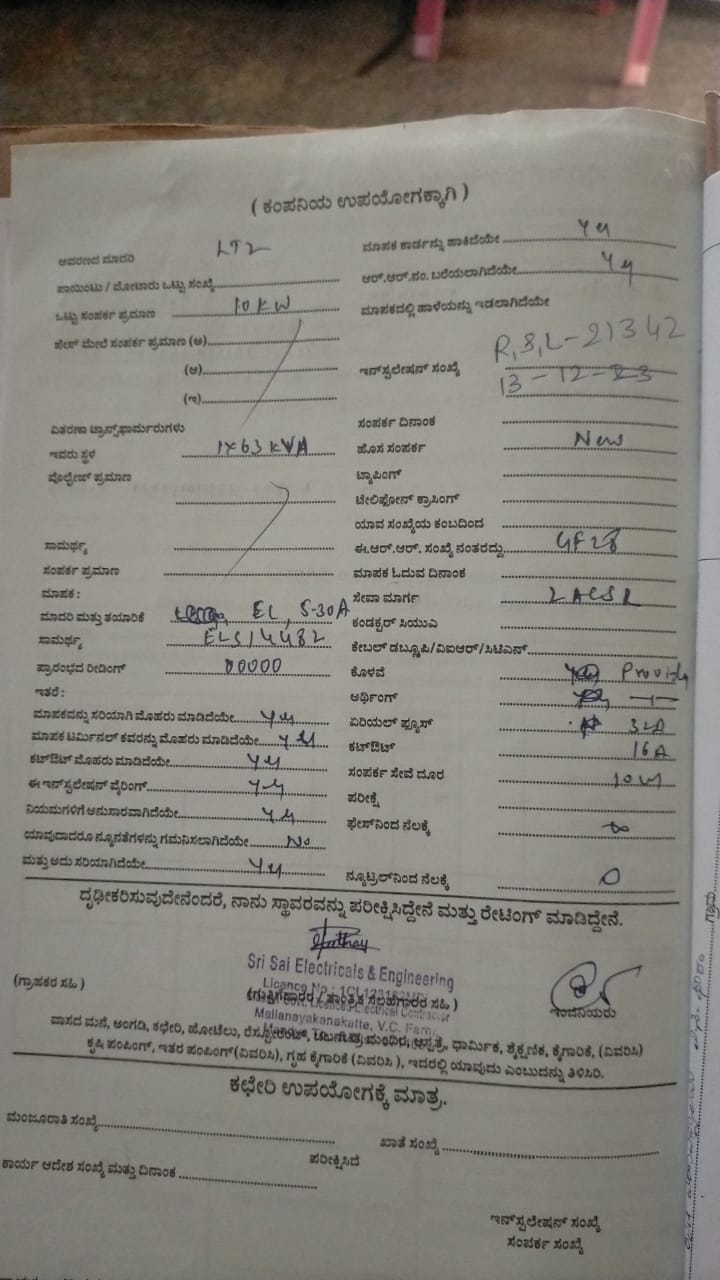 ( ಕಂಪನಿಯ ಉಪಯೋಗಕ್ಕಾಗಿ )
ಆವರಣದ ಮಾದರಿ LT2
ಪಾಯಿಂಟು / ಮೋಟಾರು ಒಟ್ಟು ಸಂಖ್ಯೆ
ಒಟ್ಟು ಸಂಪರ್ಕ ಪ್ರಮಾಣ 10 KW
ಪೇಸ್ ಮೇಲೆ ಸಂಪರ್ಕ ಪ್ರಮಾಣ (ಅ)
(ಆ)
(ಇ)
ವಿತರಣಾ ಟ್ರಾನ್ಸ್‌ಫಾರ್ಮರುಗಳು
ಇವರು ಸ್ಥಳ 1x63 KVA
ವೊಲ್ಟೇಜ್ ಪ್ರಮಾಣ
ಸಾಮರ್ಥ್ಯ
ಸಂಪರ್ಕ ಪ್ರಮಾಣ
ಮಾಪಕ :
ಮಾದರಿ ಮತ್ತು ತಯಾರಿಕೆ EL, 5-30A
ಸಾಮರ್ಥ್ಯ ELS14482
ಪ್ರಾರಂಭದ ರೀಡಿಂಗ್ 00000
ಇತರೆ :
ಮಾಪಕವನ್ನು ಸರಿಯಾಗಿ ಮೊಹರು ಮಾಡಿದೆಯೇ Yes
ಮಾಪಕ ಟರ್ಮಿನಲ್ ಕವರನ್ನು ಮೊಹರು ಮಾಡಿದೆಯೇ Yes
ಕಟ್‌ಔಟ್ ಮೊಹರು ಮಾಡಿದೆಯೇ Yes
ಈ ಇನ್‌ಸ್ಟಲೇಷನ್ ವೈರಿಂಗ್ Yes
ನಿಯಮಗಳಿಗೆ ಅನುಸಾರವಾಗಿದೆಯೇ Yes
ಯಾವುದಾದರೂ ನ್ಯೂನತೆಗಳನ್ನು ಗಮನಿಸಲಾಗಿದೆಯೇ No
ಮತ್ತು ಅದು ಸರಿಯಾಗಿದೆಯೇ Yes
ಮಾಪಕ ಕಾರ್ಡನ್ನು ಹಾಕಿದೆಯೇ Yes
ಆರ್.ಆರ್.ನಂ. ಬರೆಯಲಾಗಿದೆಯೇ Yes
ಮಾಪಕದಲ್ಲಿ ಹಾಳೆಯನ್ನು ಇಡಲಾಗಿದೆಯೇ
R,S,L-21342
ಇನ್‌ಸ್ಟಲೇಷನ್ ಸಂಖ್ಯೆ
13-12-23
ಸಂಪರ್ಕ ದಿನಾಂಕ
ಹೊಸ ಸಂಪರ್ಕ New
ಟ್ಯಾಪಿಂಗ್
ಟೆಲಿಫೋನ್ ಕ್ರಾಸಿಂಗ್
ಯಾವ ಸಂಖ್ಯೆಯ ಕಂಬದಿಂದ
ಈ.ಆರ್.ಆರ್. ಸಂಖ್ಯೆ ನಂತರದ್ದು GF28
ಮಾಪಕ ಓದುವ ದಿನಾಂಕ
ಸೇವಾ ಮಾರ್ಗ
ಕಂಡಕ್ಟರ್ ಸಿಯುಎ
ಕೇಬಲ್ ಡಬ್ಲೂಪಿ/ವಿಐಆರ್/ಸಿಟಿಎಸ್
ಕೊಳವೆ
ಅರ್ಥಿಂಗ್
ಏರಿಯಲ್ ಫ್ಯೂಸ್ 32A
ಕಟ್‌ಔಟ್ 16A
ಸಂಪರ್ಕ ಸೇವೆ ದೂರ 10 M
ಪರೀಕ್ಷೆ
ಫೇಸ್‌ನಿಂದ ನೆಲಕ್ಕೆ ∞
ನ್ಯೂಟ್ರಲ್‌ನಿಂದ ನೆಲಕ್ಕೆ 0
ದೃಢೀಕರಿಸುವುದೇನೆಂದರೆ, ನಾನು ಸ್ಥಾವರವನ್ನು ಪರೀಕ್ಷಿಸಿದ್ದೇನೆ ಮತ್ತು ರೇಟಿಂಗ್ ಮಾಡಿದ್ದೇನೆ.
Sri Sai Electricals & Engineering
(ಗ್ರಾಹಕರ ಸಹಿ )
(ಗುತ್ತಿಗೆದಾರರ / ತಾಂತ್ರಿಕ ಸಲಹೆಗಾರರ ಸಹಿ )
ಇಂಜಿನಿಯರು
Mallanayakanakatte, V.C. Farm
ವಾಸದ ಮನೆ, ಅಂಗಡಿ, ಕಛೇರಿ, ಹೋಟೆಲು, ಆಸ್ಪತ್ರೆ, ಧಾರ್ಮಿಕ, ಶೈಕ್ಷಣಿಕ, ಕೈಗಾರಿಕೆ, (ವಿವರಿಸಿ)
ಕೃಷಿ ಪಂಪಿಂಗ್, ಇತರ ಪಂಪಿಂಗ್(ವಿವರಿಸಿ), ಗೃಹ ಕೈಗಾರಿಕೆ (ವಿವರಿಸಿ ), ಇದರಲ್ಲಿ ಯಾವುದು ಎಂಬುದನ್ನು ತಿಳಿಸಿರಿ.
ಕಛೇರಿ ಉಪಯೋಗಕ್ಕೆ ಮಾತ್ರ.
ಮಂಜೂರಾತಿ ಸಂಖ್ಯೆ
ಖಾತೆ ಸಂಖ್ಯೆ
ಪರೀಕ್ಷಿಸಿದೆ
ಕಾರ್ಯ ಆದೇಶ ಸಂಖ್ಯೆ ಮತ್ತು ದಿನಾಂಕ
ಇನ್‌ಸ್ಟಲೇಷನ್ ಸಂಖ್ಯೆ
ಸಂಪರ್ಕ ಸಂಖ್ಯೆ